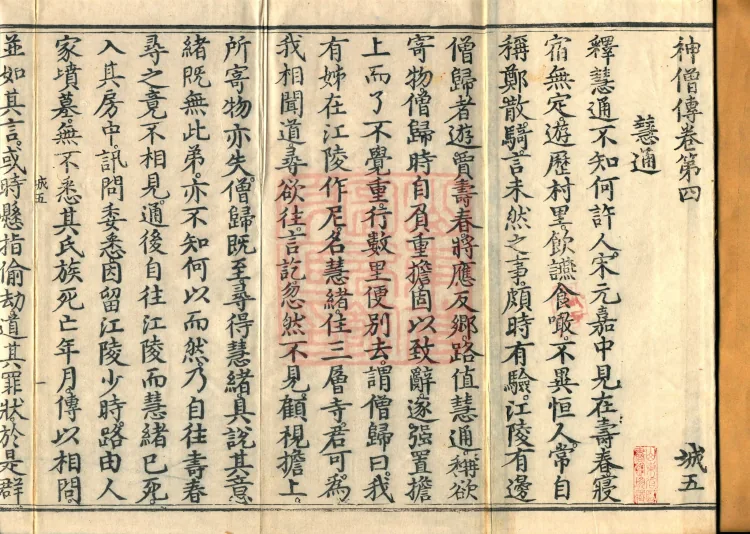 神僧傳卷第四 城五
慧通
釋慧通不知何許人宋元嘉中見在壽春寢
宿無定遊歷村里飲讌食噉不異恒人常自
稱鄭散騎言未然之事頗時有驗江陵有邊
僧歸者遊賈壽春將應反鄉路值慧通稱欲
寄物僧歸時自負重擔固以致辭遂強置擔
上而了不覺重行數里便別去謂僧歸曰我
有姊在江陵作尼名慧緒住三層寺君可為
我相聞道尋欲往言訖忽然不見顧視擔上
所寄物亦失僧歸既至尋得慧緒具說其意
緒既無此弟亦不知何以而然乃自往壽春
尋之竟不相見通後自往江陵而慧緒已死
入其房中訊問委悉因留江陵少時路由人
家墳墓無不悉其氏族死亡年月傳以相問
並如其言或時懸指偷劫道其罪狀於是群
城五 一